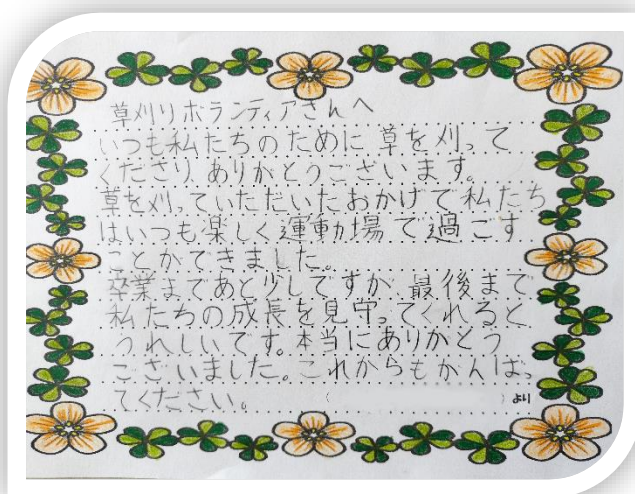 草刈りボランティアさんへ
いつも私たちのために草を刈って
くださり、ありがとうございます。
草を刈っていただいたおかげで私たち
はいつも楽しく運動場で過ごす
ことができました。
卒業まであと少しですが、最後まで
私たちの成長を見守ってくれると
うれしいです。本当にありがとう
ございました。これからもがんばっ
てください。
（　）より